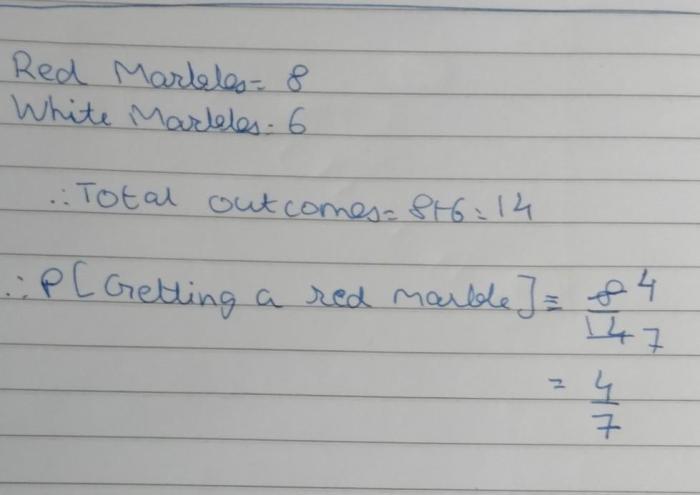 Red Marbles= 8
White Marbles= 6
∴Total outcomes= 8+6=14
∴P[Getting a red marble]= 8/14 4/7
= 4/7